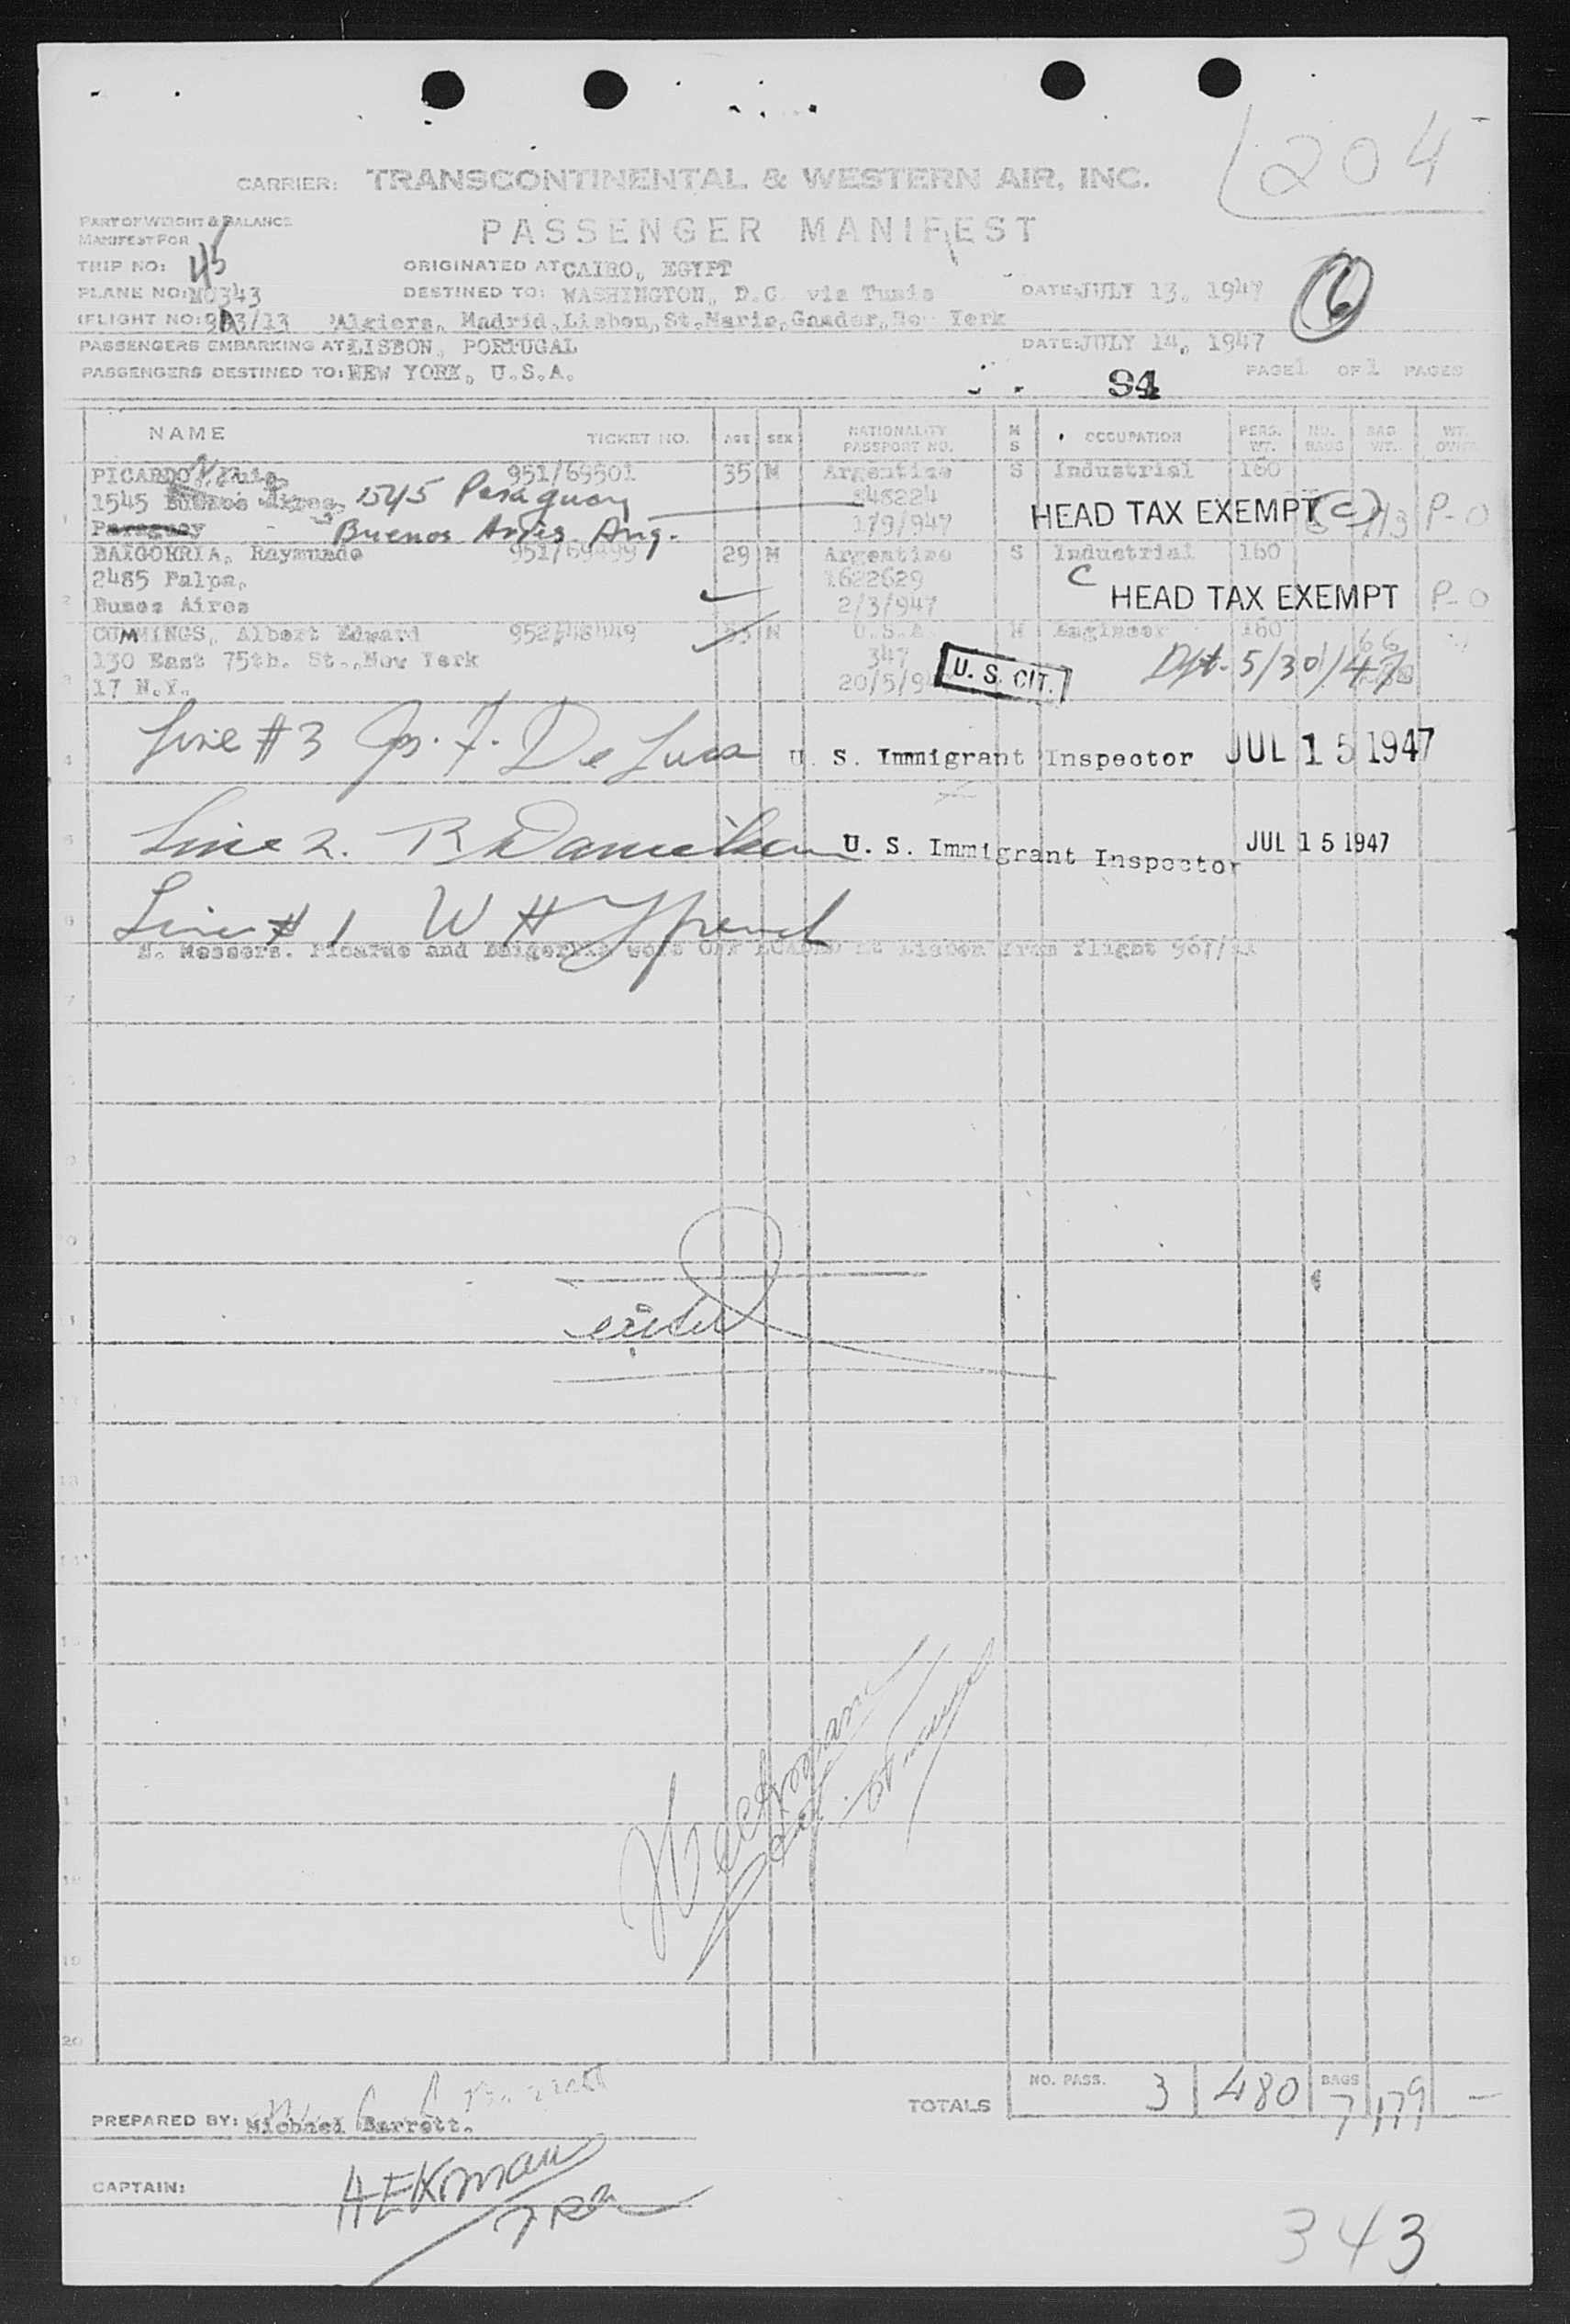 204
CARRIER: TRANSCONTINENTAL & WESTERN AIR, INC.
PART OF WEIGHT & BALANCE
MANIFEST FOR
PASSENGER MANIFEST
TRIP NO: 45
ORIGINATED AT CAIRO, EGYPT
PLANE NO: NC343
DESTINED TO: WASHINGTON, D.C. via Tunis
DATE: JULY 13, 1947
6
FLIGHT NO: 903/13 Algiers, Madrid, Lisbon, St. Maria, Gander, New York
PASSENGERS EMBARKING AT LISBON, PORTUGAL
DATE: JULY 14, 1947
PASSENGERS DESTINED TO: NEW YORK, U.S.A.
94
PAGE 1 OF 1 PAGES
NAME TICKET NO. AGE SEX NATIONALITY PASSPORT NO. M S OCCUPATION PERS. WT. NO. BAGS BAG WT. WT. OVER
PICARDO, Luis 951/69501 35 M Argentine S Industrial 160
1545 Buenos Aires 1545 Paraguay
HEAD TAX EXEMPT (C) P-O
1 Paraguay Buenos Aires Arg. 179/947
BAIGORRIA, Raymundo 951/69499 29 M Argentine S Industrial 160
2485 Palpa, 1622629 C HEAD TAX EXEMPT P-O
2 Buenos Aires 2/3/947
CUMMINGS, Albert Edward 53 M U.S.A M Engineer 160
130 East 75th. St., New York 347 U. S. CIT. Dpt. 5/30/47
3 17 N.Y. 20/5/9
4 Line #3 Jos. F. De Luca U. S. Immigrant Inspector JUL 15 1947
5 Line 2. U. S. Immigrant Inspector JUL 15 1947
6 Line #1 W H French
N. Messers. Picardo and Baigorria were OFF LOADED at Lisbon from flight 967/11
7
10
13
18
19
20
TOTALS NO. PASS. 3 480 BAGS 7 179 —
PREPARED BY: Michael Barrett.
CAPTAIN: HEKman
343